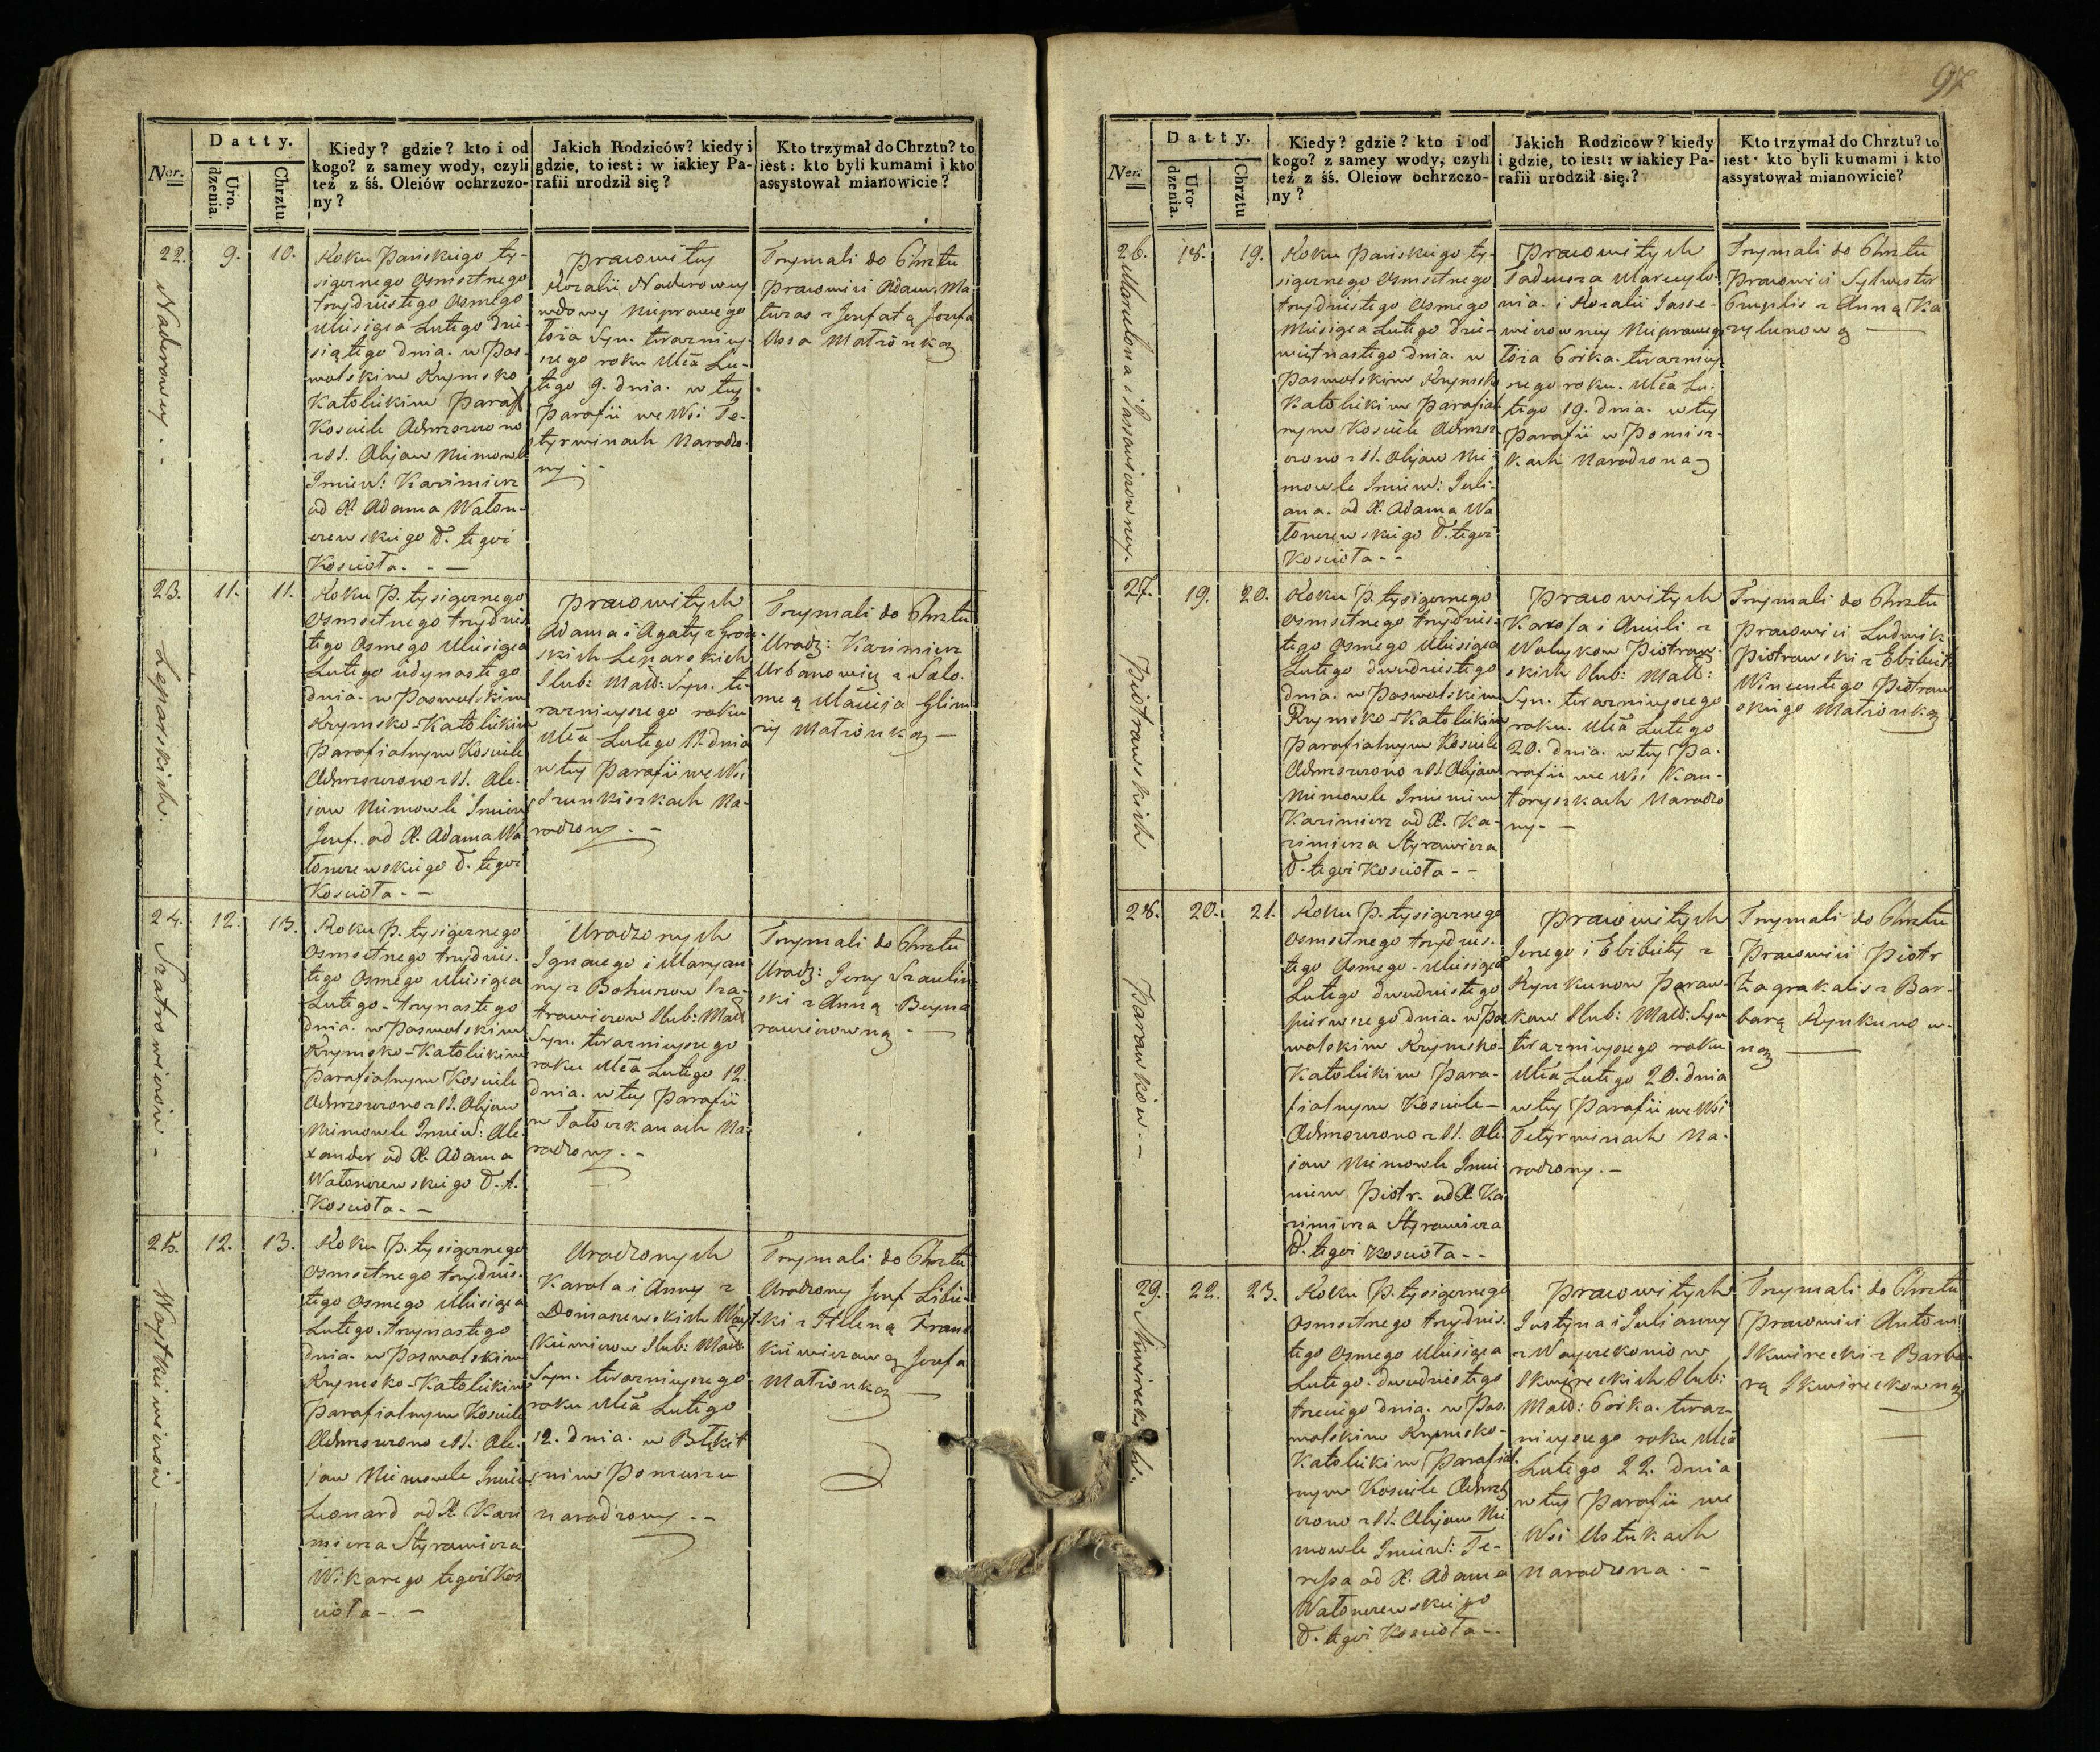 97
Datty.
Ner.
Uro-
dzenia.
Chrztu
Kiedy? gdzie? kto i od
kogo? z samey wody, czyli
też z śś. Oleiów ochrzczo-
ny?
Jakich Rodziców? kiedy i
gdzie, to iest: w iakiey Pa-
rafii urodził się?
Kto trzymał do Chrztu? to
iest: kto byli kumami i kto
assystował mianowicie?
22.
Naderowny.
9.
10.
Roku Pańskiego ty-
siącznego osmsetnego
trzydziestego osmego
Miesiąca Lutego dzie-
siątego dnia. w Pos-
wolskim Rzymsko
Katolickim Paraf
Kosciele Ochrzczono
z SS. Olejow Niemowle
Imiem: Kazimierz
od X. Adama Waton-
czewskiego D. tegoż
Kościoła. - —
Prawowitey
Rozalii Naderowny
wdowy nieprawego
łoża Syn. teraźniey-
szego roku Mca Lu-
tego 9. dnia. w tey
Parafii we Wsi Te-
tyrwinach Narodzo-
ny. -
Trzymali do Chrztu
Prawowici Adam Ma-
tuzas z Jozefatą Jozefa
Ussa Małżonką
23.
Leparskich.
11.
11.
Roku P. tysiącznego
osmsetnego trzydzies-
tego osmego Miesiąca
Lutego iedynastego
dnia. w Poswolskim
Rzymsko-Katolickim
Parafialnym Kosciele
Ochrzczono z SS. Ole-
jow Niemowle Imiem
Jozef. od X. Adama Wa-
tonczewskiego D. tegoż
Kościoła - —
Prawowitych
Adama i Agaty z Gron-
skich Leparskich
Slub: Małż: Syn. te-
raźnieyszego roku
Mca Lutego 11. dnia
w tey Parafii we Wsi
Szunkiszkach Na-
rodzony. -
Trzymali do Chrztu
Urodz: Kazimierz
Urbanowicz z Salo-
meą Macieja Glim-
Małżonką —
24.
Szatrowiczow -
12.
13.
Roku P. tysiącznego
osmsetnego trzydzies-
tego osmego Miesiąca
Lutego - trzynastego
dnia. w Poswolskim
Rzymsko-Katolickim
Parafialnym Kosciele
Ochrzczono z SS. Olejow
Niemowle Imiem: Ale-
xander od X. Adama
Watonczewskiego D. t.
Kościoła - —
Urodzonych
Ignacego i Maryan-
ny z Bohuszow Sza-
trowiczow Slub: Małż
Syn. teraźnieyszego
roku Mca Lutego 12.
dnia. w tey Parafii
w Tatoczkanach Na-
rodzony. -
Trzymali do Chrztu
Urodz: Jerzy Szaulin-
ski z Anną Beyna-
rowiczowną - —
25.
Woytkiewiczow —
12.
13.
Roku P. tysiącznego
osmsetnego trzydzies-
tego osmego Miesiąca
Lutego. trzynastego
dnia. w Poswolskim
Rzymsko-Katolickim
Parafialnym Kosciele
Ochrzczono z SS. Ole-
jow Niemowle Imie
Leonard od X. Kazi
mierza Styrawicza
Wikarego tegoż Koś
cioła - . —
Urodzonych
Karola i Anny z
Domaszewskich Woyt-
kiewiczow Slub: Małż
Syn. teraźnieyszego
roku Mca Lutego
12. dnia. w Błękit
nim Pomuszu
narodzony. -
Trzymali do Chrztu
Urodzony Jozef Libic-
ki z Heleną Franc
kiewiczową Jozefa
Małżonką
Datty.
Ner.
Uro-
dzenia.
Chrztu
Kiedy? gdzie? kto i od
kogo? z samey wody, czyli
też z śś. Oleiow ochrzczo-
ny?
Jakich Rodziców? kiedy
i gdzie, to iest: w iakiey Pa-
rafii urodził się?
Kto trzymał do Chrztu? to
iest: kto byli kumami i kto
assystował mianowicie?
26.
18.
19.
Roku Pańskiego ty-
siącznego osmsetnego
trzydziestego osmego
Miesiąca Lutego dzie-
więtnastego dnia. w
Poswolskim Rzymsk
Katolickim Parafial-
nym Kosciele Ochrz-
czono z SS. Olejow Nie-
mowle Imiem: Juli-
ana. od X. Adama Wa
tonczewskiego D. tegoż
Kościoła - -
Prawowitych
Tadeusza Marcyło-
nia. i Rozalii Jasse-
wiczowny Nieprawego
łoża Córka. teraźniey
szego roku. Mca Lu-
tego 19. dnia. w tey
Parafii w Pomisz-
kach Narodzona
Trzymali do Chrztu
Prawowici Sylwester
z Anną Ka
zylunową —
27.
Piotrowskich
19.
20.
Roku P. tysiącznego
osmsetnego trzydzies-
tego osmego Miesiąca
Lutego dwudziestego
dnia. w Poswolskim
Rzymsko-Katolickim
Parafialnym Kosciele
Ochrzczono z SS. Olejow
Niemowle Imieniem
Kazimierz od X. Ka-
zimierza Styrawicza
D. tegoż Kościoła - -
Prawowitych
Karola i Anieli z
Wołuykow Piotrow-
skich Slub: Małż:
Syn. teraźnieyszego
roku. Mca Lutego
20. dnia. w tey Pa-
rafii we Wsi Kan-
toryszkach Narodzo
ny. —
Trzymali do Chrztu
Prawowici Ludwik
Piotrowski z Elżbietą
Wincentego Piotrow
skiego Małżonką
28.
Parawkow. —
20.
21.
Roku P. tysiącznego
osmsetnego trzydzies-
tego osmego - Miesiąca
Lutego dwudziestego
pierwszego dnia. w Pos
wolskim Rzymsko-
Katolickim Para-
fialnym Kosciele —
Ochrzczono z SS. Ole-
jow Niemowle Imie-
niem Piotr. od X. Ka
zimierza Styrawicza
D. tegoż Kościoła - -
Prawowitych
Jerzego i Elżbiety z
Rynkunow Paraw-
kow Slub: Małż: Syn
teraźnieyszego roku
Mca Lutego 20. dnia
w tey Parafii we Wsi
Tetyrwinach Na-
rodzony. —
Trzymali do Chrztu
Prawowici Piotr
Zagrakalis z Bar-
barą Rynkunow-
ną —
29.
Skwireckich.
22.
23.
Roku P. tysiącznego
osmsetnego trzydzies-
tego osmego Miesiąca
Lutego. dwudziestego
trzeciego dnia. w Pos-
wolskim Rzymsko-
Katolickim Parafial-
nym Kosciele Ochrz
czono z SS. Olejow Nie
mowle Imiem: Te-
ressa od X. Adama
Watonczewskiego
D. tegoż Kościoła - -
Prawowitych
Justyna i Julianny
z Woyczekoniow
Skwireckich Slub:
Małż: Córka. teraz-
nieyszego roku Mca
Lutego 22. dnia
w tey Parafii we
Wsi Ustukach
Narodzona. -
Trzymali do Chrztu
Prawowici Antoni
Skwirecki z Barba-
rą Skwireckowną